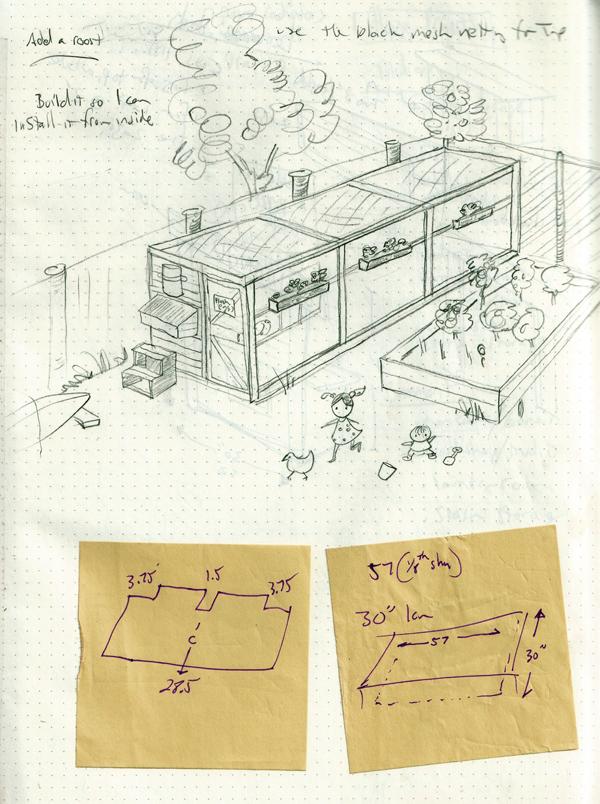 Add a roost
use the black mesh netting for Top
Build it so I can
install it from inside
3.75
1.5
3.75
C
28.5
57 (1/8th shy)
30"
57
30"